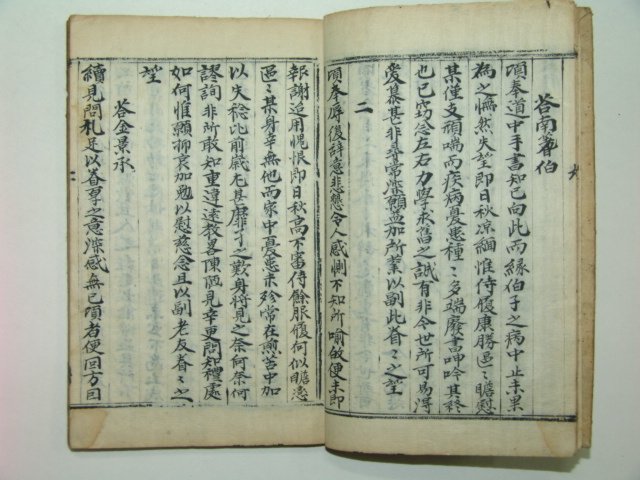 答南華伯
項奉道中手書知已向此而緣伯子之病中止未果
為之悵然失望即日秋凉緬惟侍履康勝區〻瞻慰
某僅支頑喘而疾病憂患種〻多端廢書呻吟其終
也已竊念左右力學承舊之誠有非今世所可易得
愛慕甚非尋常深願益加所業以副此眷〻之望
二
項奉辱復辞意悲懇令人感惻不知所喻敀便未即
報謝迨用愧恨即日秋高不審侍餘服履何似瞻戀
區〻某身辛無他而家中憂患未殄常在煎熬中加
以失稔比前歲尤甚靡孑之歎身將見之奈何奈何
謬詢非所敢知重違遠教畧陳陋見幸更問知禮處
如何惟願抑哀加勉以慰慈念且以副老友眷〻之
望
答金景承
續見問札足以眷厚之意深感無已項者便回方曰